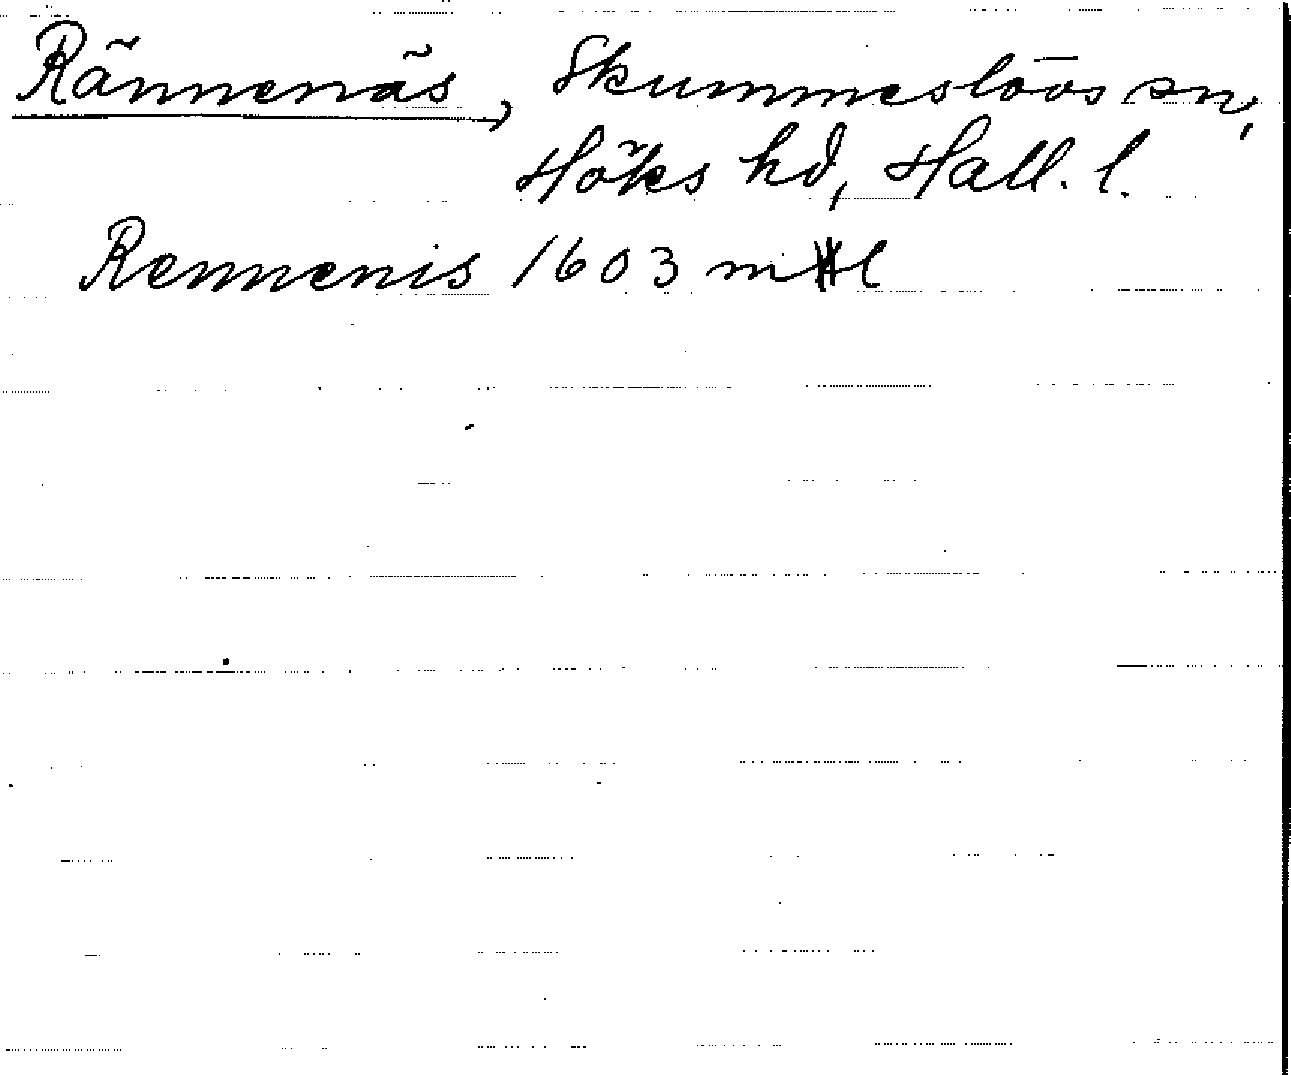 Rännenäs, Skummeslövs sn,
Höks hd, Hall. l.
Rennenis 1603